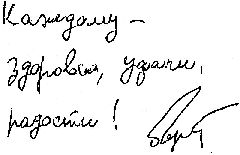 Каждому –
здоровья, удачи,
радости!